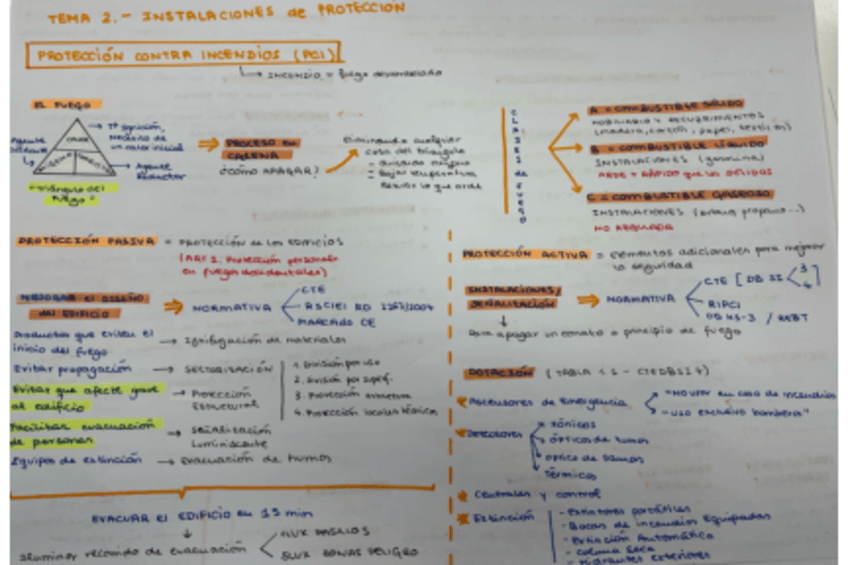 TEMA 2.- INSTALACIONES de PROTECCION
PROTECCIÓN CONTRA INCENDIOS (PCI)
INCENDIO = fuego desarrollado
EL FUEGO
Tª ignición,
necesita de
un calor inicial
Agente
Reductor
"Triángulo del
Fuego"
PROCESO en
CADENA
¿Cómo APAGAR?
Eliminando cualquier
cosa del triángulo
- Bajar temperatura
- Retirar lo que arde
CLASES de FUEGO
A = COMBUSTIBLE SÓLIDO
MOBILIARIO Y RECUBRIMIENTOS
(madera, cartón, papel, textiles)
B = COMBUSTIBLE LÍQUIDO
INSTALACIONES (gasolina)
ARDE + RÁPIDO que los SÓLIDOS
C = COMBUSTIBLE GASEOSO
INSTALACIONES (butano, propano...)
NO REGULADA
PROTECCIÓN PASIVA = PROTECCIÓN de los EDIFICIOS
en fuegos accidentales)
MEJORAR el DISEÑO
del EDIFICIO
NORMATIVA
CTE
RSCIEI RD 2267/2004
MARCADO CE
Productos que eviten el
inicio del fuego
→ Ignifugación de materiales
Evitar propagación → SECTORIZACIÓN
1. División por uso
2. División por superf.
3. Protección estructura
4. Protección locales técnicos
Evitar que afecte gave
al edificio
→ Protección
Estructural
Facilitar evacuación
de personas
→ Señalización
Luminiscente
Equipos de extinción → Evacuación de humos
EVACUAR el EDIFICIO en 15 min
Iluminar recorrido de evacuación
1LUX PASILLOS
5LUX ZONAS PELIGRO
PROTECCIÓN ACTIVA = Elementos adicionales para mejorar
la seguridad
INSTALACIONES/
SEÑALIZACIÓN
NORMATIVA
CTE [DB SI < 3
4]
RIPCI
DB HS-3 / REBT
Para apagar un conato o principio de fuego
DOTACIÓN (TABLA 1.1 - CTE DB SI 4)
* Ascensores de Emergencia
"NO usar en caso de incendios"
"USO exclusivo bomberos"
* Detectores
iónicos
ópticos de humos
óptico de llamas
térmicos
* Centrales y control
* Extinción
- Extintores portátiles
- Bocas de incendios Equipadas
- Extinción Automática
- Columna Seca
- Hidrantes exteriores